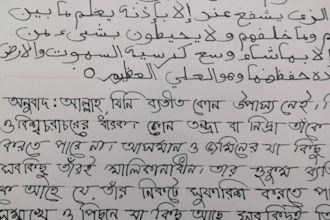 الذى يشفع عنده إلا بإذنه يعلم ما بين
وما خلفهم ولا يحيطون بشىء من
إلا بما شاء وسع كرسيه السموت والارض
ده حفظهما وهو العلي العظيم ٥
অনুবাদ : আল্লাহ্, যিনি ব্যতীত কোন উপাস্য নেই,
ও বিশ্বচরাচরের ধারক। কোন তন্দ্রা বা নিদ্রা তাঁকে
করতে পারে না। আসমান ও জমিনের যা কিছু
সবকিছু তাঁরই মালিকানাধীন। তার হুকুম ব্যতি
আছে যে, তাঁর নিকটে সুফারিশ করতে পা
সম্মুখে ও পিছনে যা কিছু আছে সবকিছুই